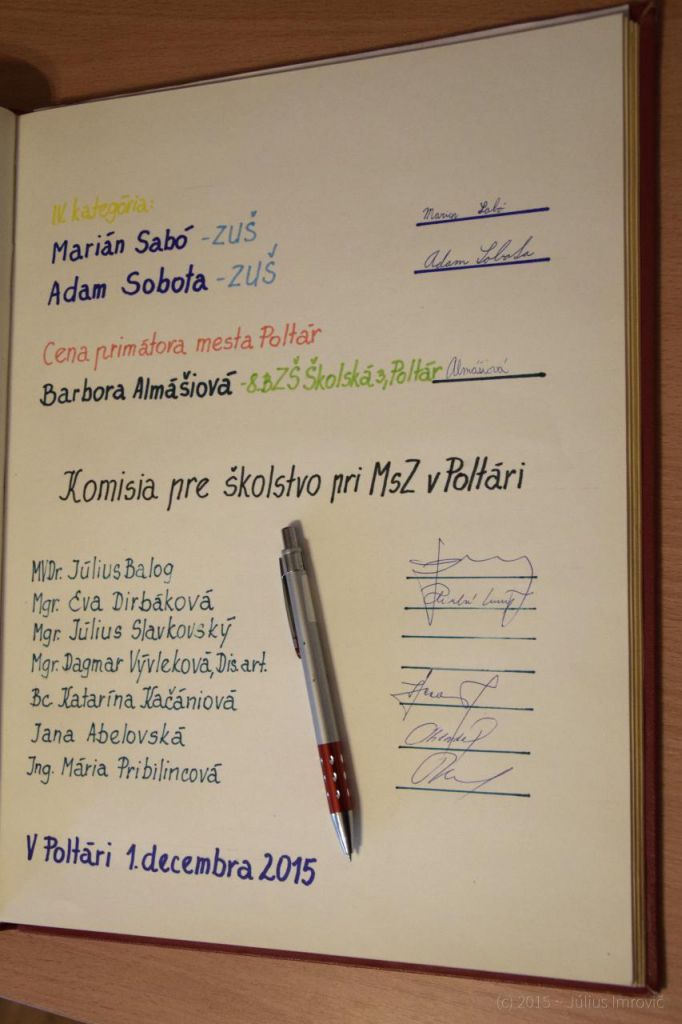 IV. kategória:
Marián Sabó - ZUŠ Marian Sabó
Adam Sobota - ZUŠ Adam Sobota
Cena primátora mesta Poltár
Barbora Almášiová - 8.B ZŠ Školská 3, Poltár Almášiová
Komisia pre školstvo pri MsZ v Poltári
MVDr. Július Balog
Mgr. Eva Dirbáková
Mgr. Július Slavkovský
Mgr. Dagmar Vývleková, Dis.art.
Bc. Katarína Kačániová
Jana Abelovská
Ing. Mária Pribilincová
V Poltári 1. decembra 2015
(c) 2015 - Július Imrovič